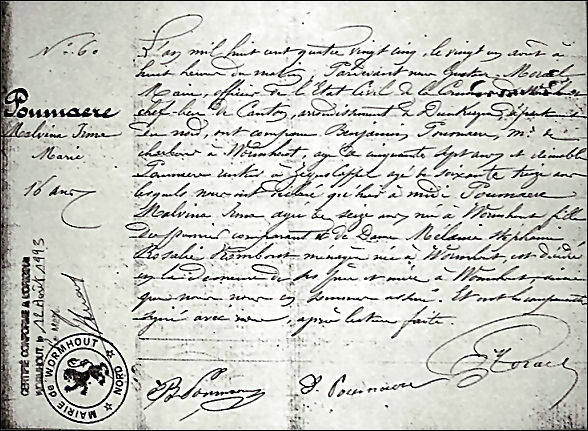 N.° 60
Poumaere
Malvina Irma
Marie
16 ans
L'an mil huit cent quatre vingt cinq, le vingt un août à
huit heures du matin, Pardevant nous Gustave
Maire, officier de l'Etat Civil de la Commune de
chef-lieu de Canton, arrondissement de Dunkerque, départ
du nord, ont comparu Benjamin Poumaere, md de
charbons à Wormhout, agé de cinquante sept ans et
Poumaere à Zegerscappel agé de soixante treize ans
lesquels nous ont déclaré qu'hier à midi Poumaere
Malvina Irma agée de seize ans née à Wormhout fille
du premier comparant et de Dame Mélanie Stéphanie
Rosalie ménagère née à Wormhout, est décédée
en la demeure de ses père et mère à Wormhout, ainsi
que nous nous en sommes assuré. Et ont les comparants
signé avec nous, après lecture faite.
B Poumaere
D. Poumaere
CERTIFIÉ CONFORME A L'ORIGINAL
WORMHOUT, le 12 Août 1993
MAIRIE de WORMHOUT
NORD